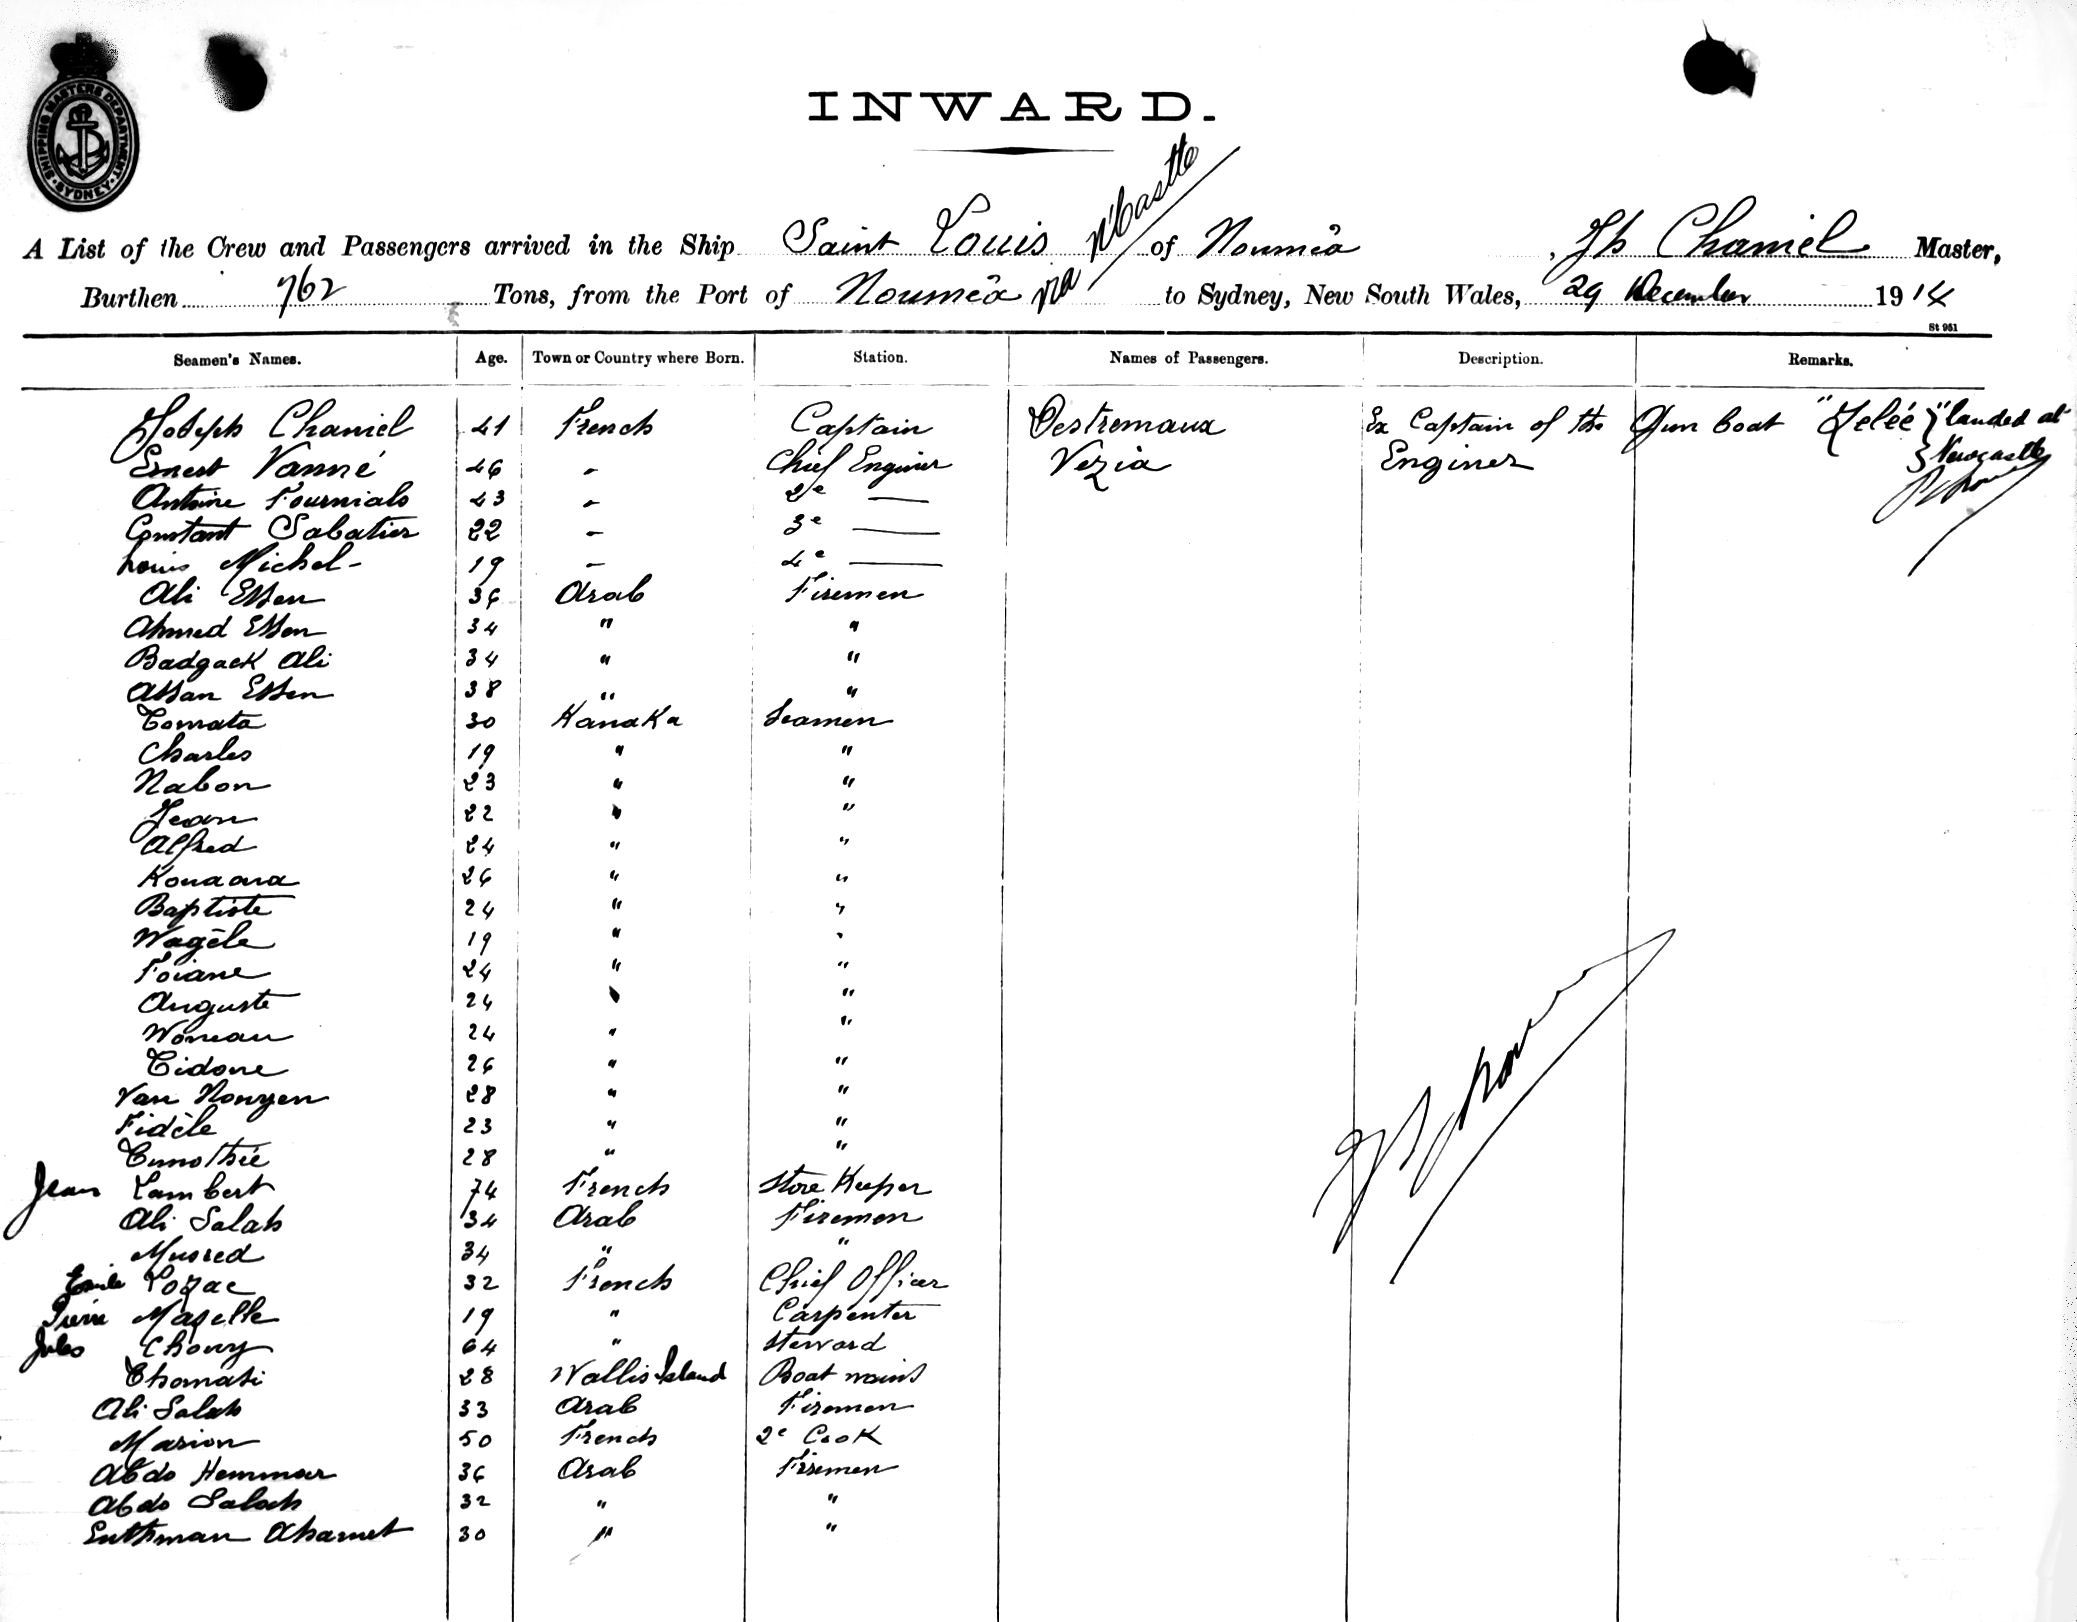 SHIPPING MASTERS DEPARTMENT
SYDNEY
INWARD.
via N'Castle
A List of the Crew and Passengers arrived in the Ship Saint Louis of Nouméa, Jh Chaniel Master,
Burthen 762 Tons, from the Port of Nouméa to Sydney, New South Wales, 29 December 1914
St 951
Seamen's Names. Age. Town or Country where Born. Station. Names of Passengers. Description. Remarks.
Joseph Chaniel 41 French Captain Destremaux Ex Captain of the Gun boat "Zélée" landed at
Ernest Vanné 46 - Chief Enginer Vezia Enginer Newcastle
Antoine Fournials 43 - 2e —
Constant Sabatier 22 - 3e —
Louis Michel - 19 - 4e —
Ali Essen 36 Arab Firemen
Ahmed Essen 34 " "
Badgack Ali 34 " "
Assan Essen 38 " "
Tomata 30 Kanaka Seamen
Charles 19 " "
Nabon 23 " "
Jean 22 " "
Alfred 24 " "
Kouaoua 26 " "
Baptiste 24 " "
Wagéle 19 " "
Foiane 24 " "
Auguste 24 " "
Woneau 24 " "
Tidone 26 " "
Van Nonyen 28 " "
Fidèle 23 " "
Timothée 28 " "
Jean Lambert 74 French Store Keeper
Ali Salah 34 Arab Firemen
Mussed 34 " "
Emile Lozac 32 French Chief Officer
Pierre Mazelle 19 " Carpenter
Jules Chouvy 64 " Steward
Thomasi 28 Wallis Island Boat mains
Ali Salah 33 Arab Firemen
Marion 50 French 2e Cook
Abdo Hemmar 36 Arab Firemen
Abdo Salach 32 " "
Suthman Ahamet 30 " "